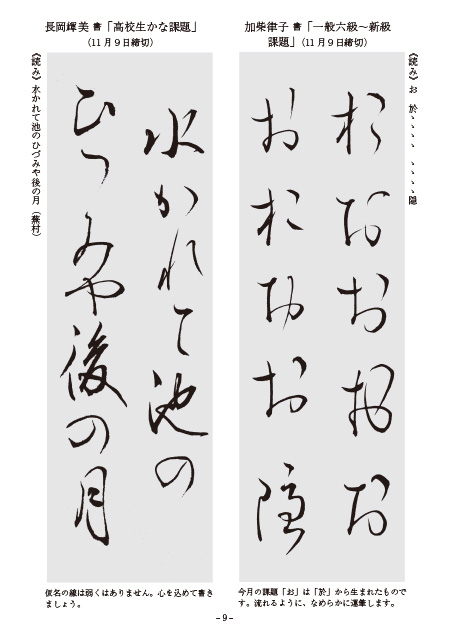 加柴律子 書「一般六級～新級
課題」(11月9日締切)
《読み》お 於ヽヽヽヽ ヽヽヽヽ隠
お
隠
今月の課題「お」は「於」から生まれたもので
す。流れるように、なめらかに運筆します。
長岡輝美 書「高校生かな課題」
(11月9日締切)
《読み》水かれて池のひづみや後の月（蕪村）
水かれて池の
ひつみや後の月
仮名の線は弱くはありません。心を込めて書き
ましょう。
- 9 -